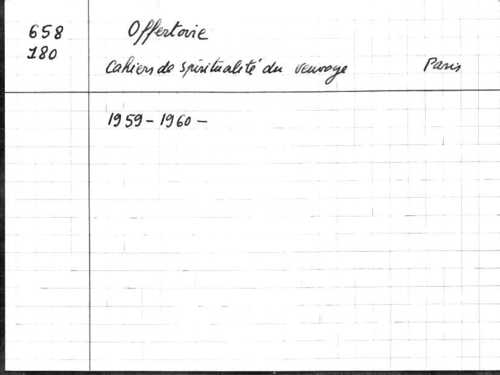 658 Offertoire
180 Cahiers de spiritualité du veuvage Paris
1959-1960-